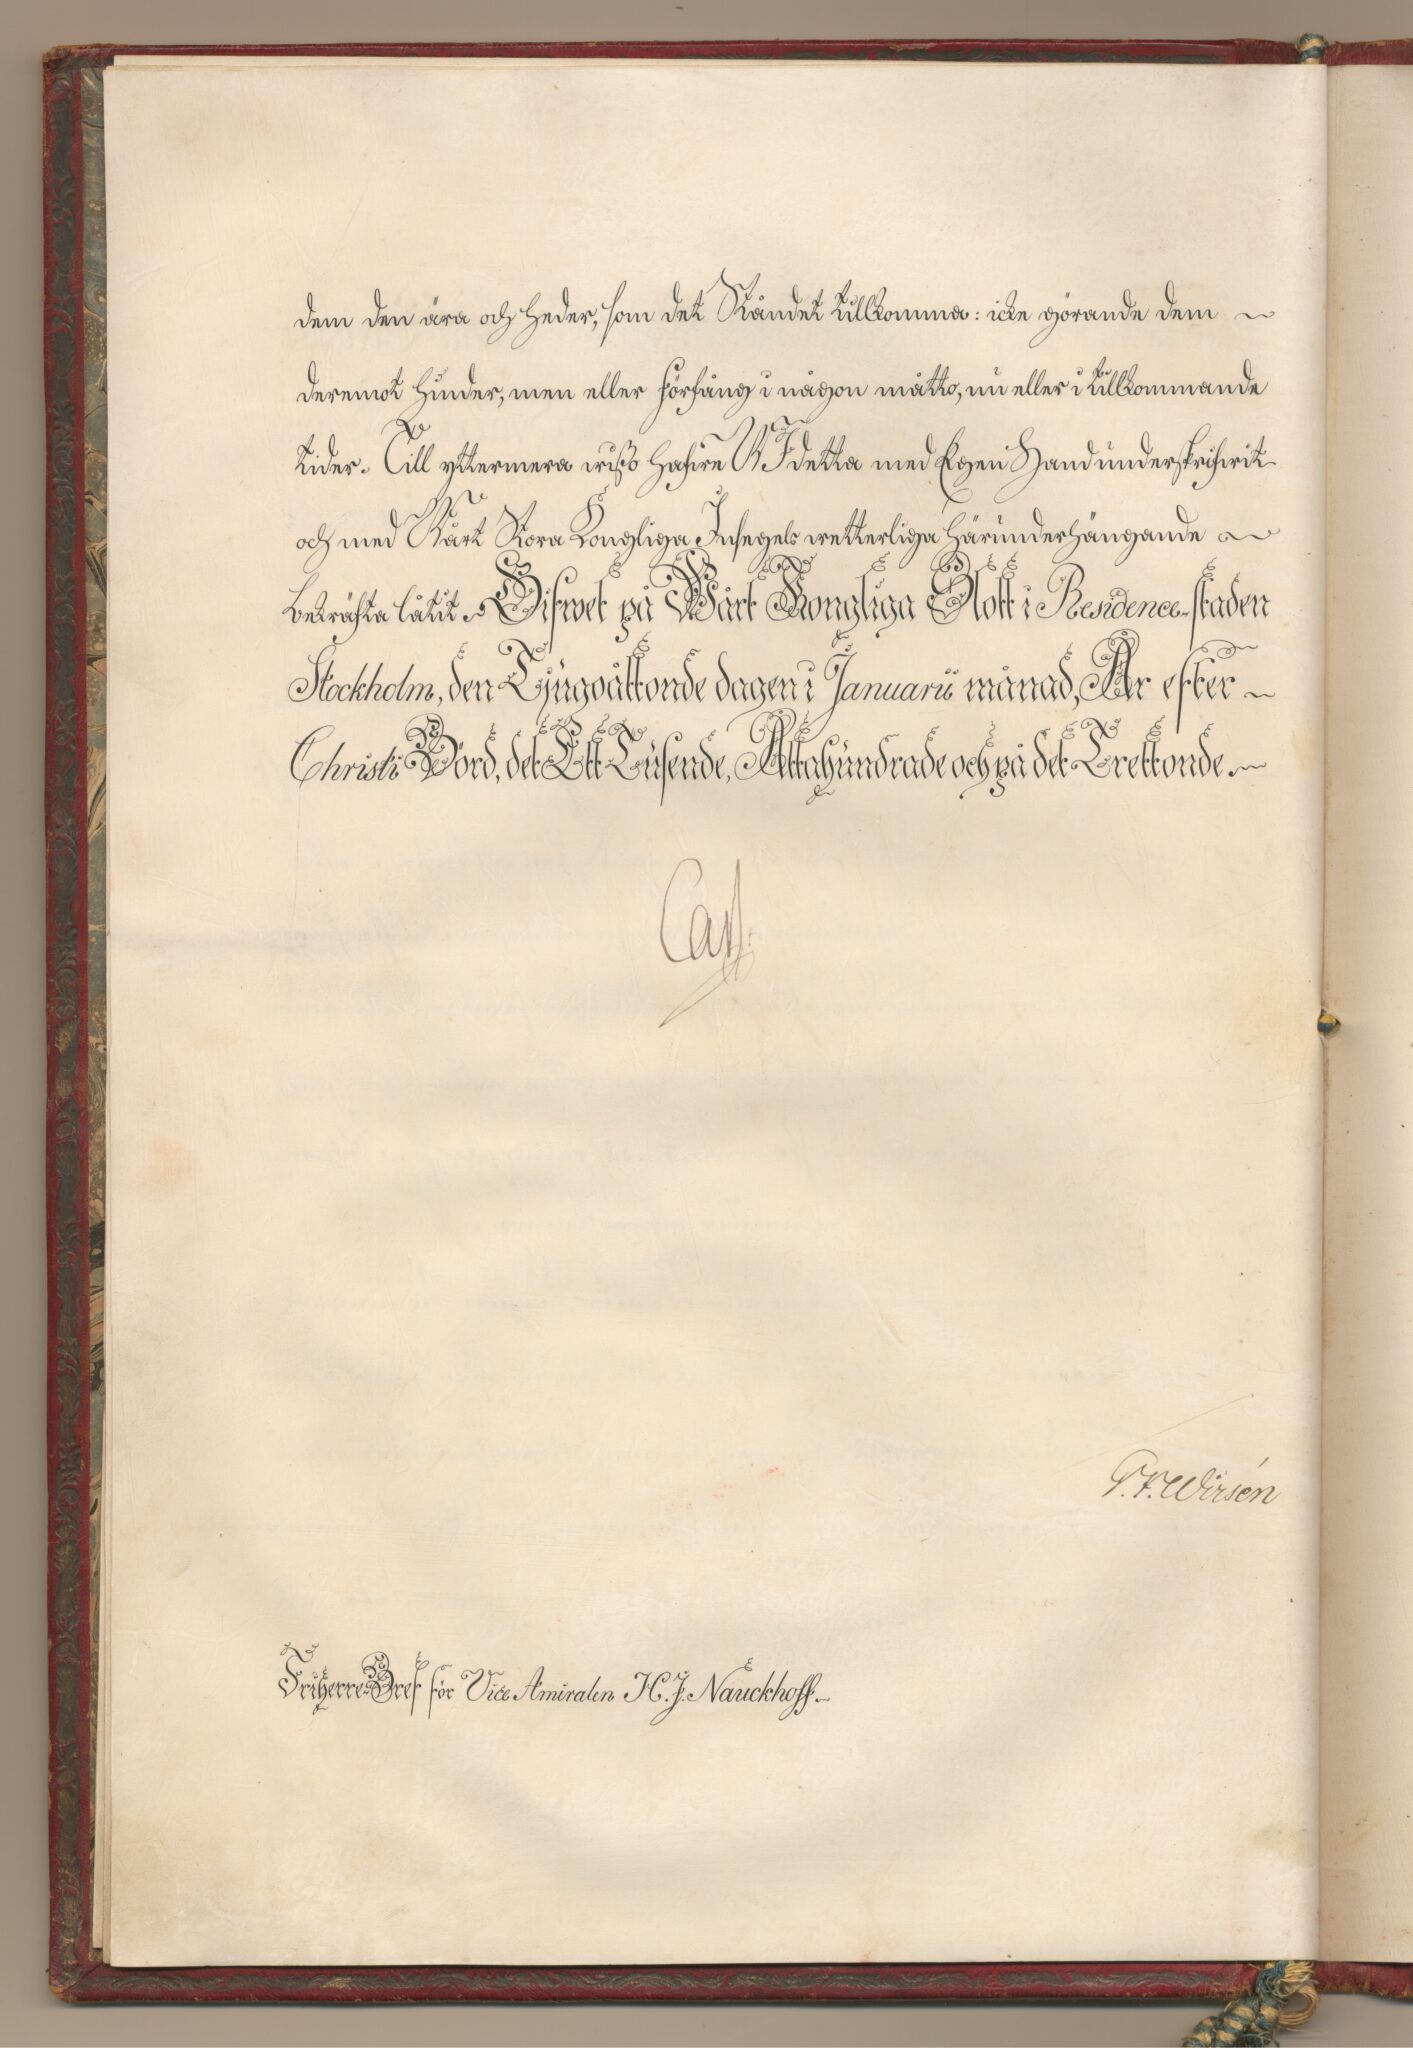 dem den ära och heder, som det Ståndet tillkomma: icke görande dem ~
deremot hinder, men eller förfång i någon måtto, nu eller i tillkommande
tider. Till yttermera wisso hafwe WI detta med Egen Hand underskrifwit
och med Wårt Stora Kongliga Insegels wetterliga härunderhängande ~
bekräfta låtit. Gifwet på Wårt Kongliga Slott i Residence-staden
Stockholm, den Tjugoåttonde dagen i Januarii månad, År efter ~
Christi Börd, det Ett Tusende, Åttahundrade och på det Trettonde. ~
Carl
G. F. Wirsén
Friherre-Bref för Vice Amiralen H. J. Nauckhoff. ~